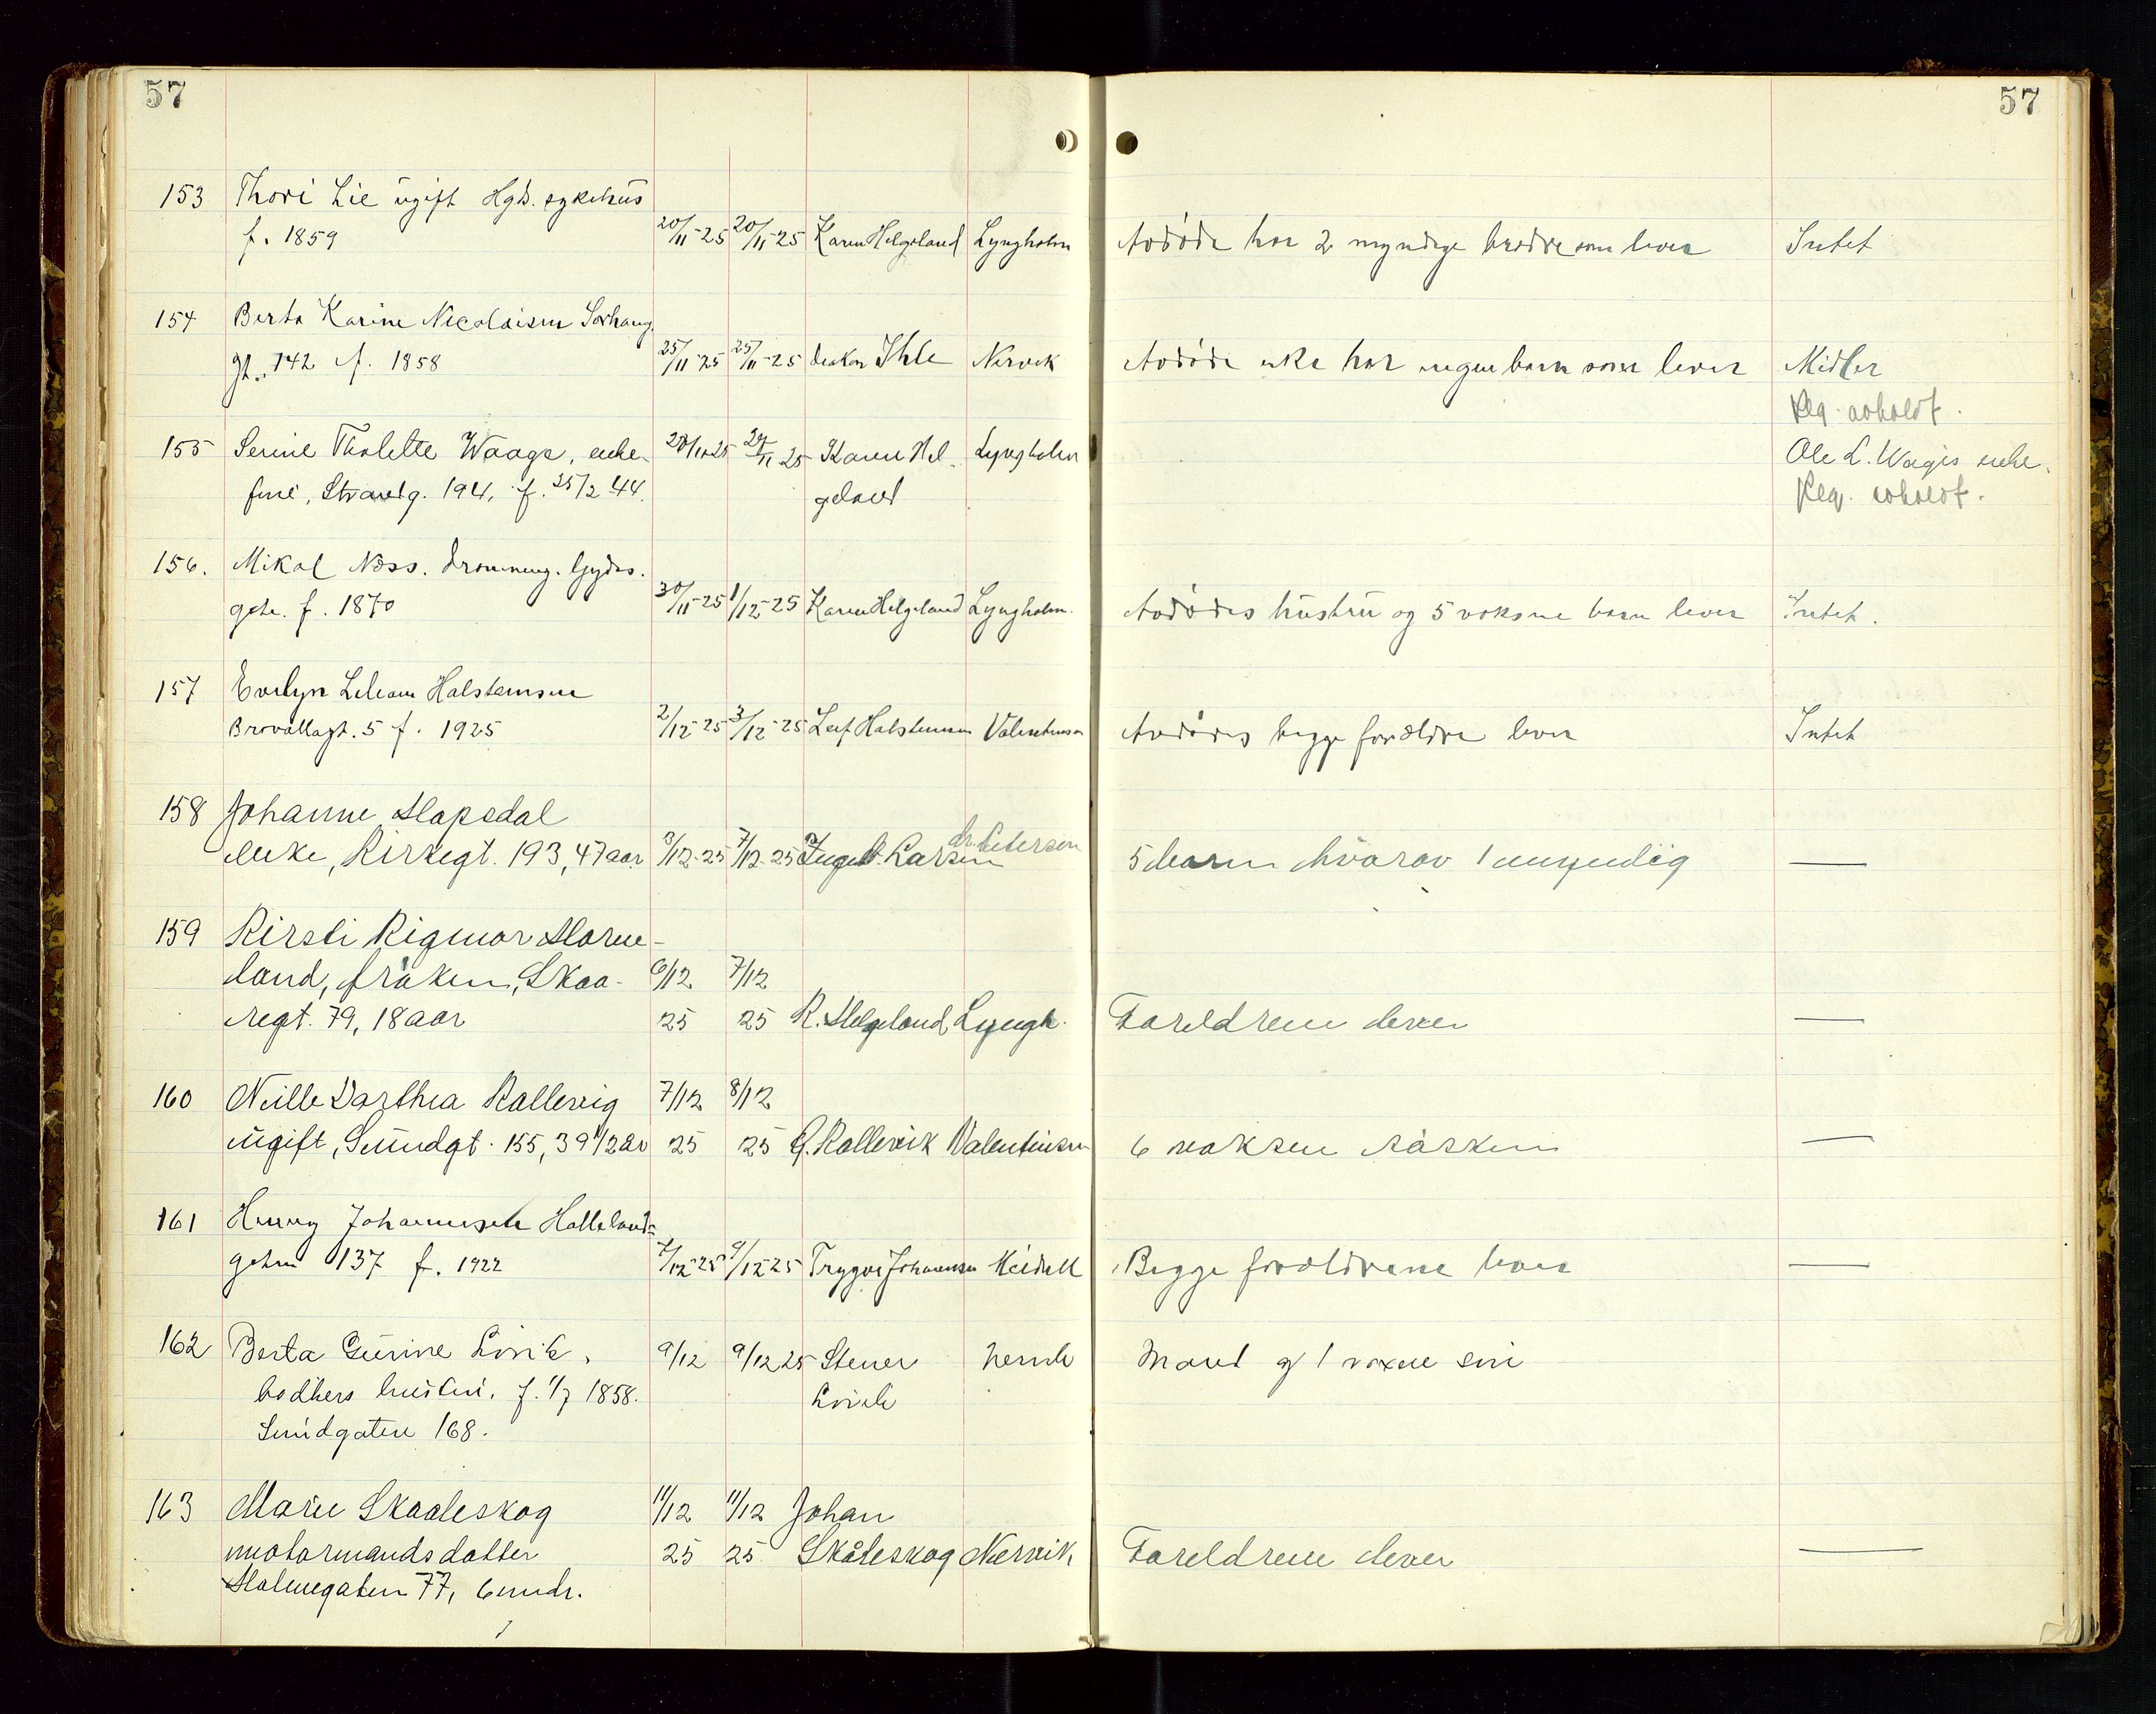 57
57
153 Thori Lie ugift Hgds. sykehus
f. 1859 20/11-25 20/11-25 Karen Helgeland Lyngholm Avdøde har 2 myndige brødre som lever Intet
154 Berta Karine Nicolaisen Sørhaug
gt. 142 f. 1858 25/11-25 25/11-25 diakon Ihle Nervik Avdøde enke har ingen barn som lever Midler
Reg. avholdt.
155 Serine Tholette Waage, enke- 28/11-25 29/11 25 Karen Hel- Lyngholm Ole L. Wages enke.
frue, Strandg. 194, f. 25/2 44. geland Reg. avholdt.
156. Mikal Næss. dronning. Gydas.
gate. f. 1870 30/11-25 1/12-25 Karen Helgeland Lyngholm. Avdødes hustru og 5 voksne barn lever Intet.
157 Evelyn Lilean Halstensen
Brovollagt. 5 f. 1925 2/12-25 3/12-25 Leif Halstensen Valentinsen Avdødes begge forældre lever Intet
158 Johanne Hapsdal
enke, Kirkegt. 193, 47 aar 3/12-25 7/12-25 Ingeb. Larsen dr. Petersen 5 barn hvorav 1 umyndig —
159 Kirsti Rigmor Horne-
land, frøken, Skaa- 6/12 7/12
regt. 79, 18 aar 25 25 K. Helgeland Lyngh. Foreldrene lever —
160 Neille Dorthea Kallevig 7/12 8/12
ugift, Sundgt. 155, 39 1/2 aar 25 25 G. Kallevik Valentinsen 6 voksne søsken —
161 Henny Johannesen Halleland-
gaten 137 f. 1922 7/12-25 9/12 25 Trygve Johannesen Meidell Begge forældrene lever —
162 Berta Gurine Lovik, 9/12 9/12 25 Stener Nervik Mand og 1 voxne søn
bødkers hustru. f. 1/7 1858. Lovik
Sundgaten 168.
163 Marie Skaaleskog 11/12 11/12 Johan
motormandsdatter 25 25 Skåleskog Nervik Foreldrene lever —
Holmegaten 77, 6 mndr.